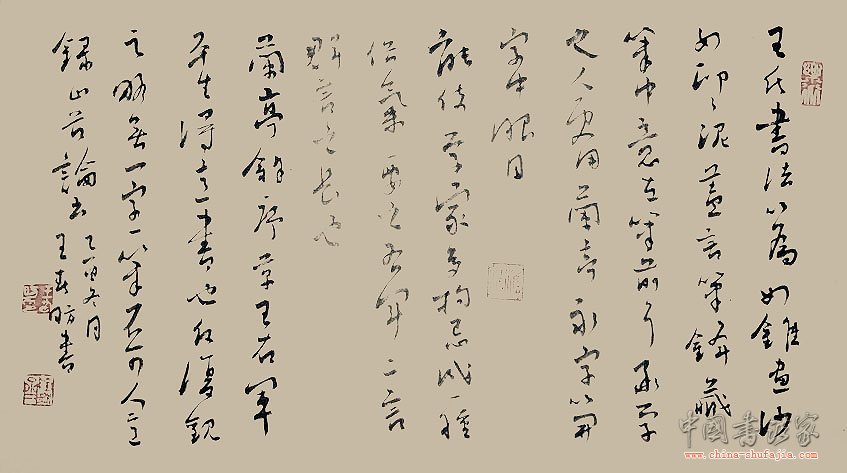 王氏書法以為如錐畫沙
如印印泥蓋言筆鋒藏
筆中意在筆前耳承學
之人更用蘭亭永字以開
字中眼目
能使學家多拘忌成一種
俗氣要之右軍二言
群言之長也
蘭亭敘草王右軍
平生得意書也反復觀
之略無一字一筆不可人意
錄山谷論書 乙酉冬月
王書
中國書法家
www.china-shufajia.com